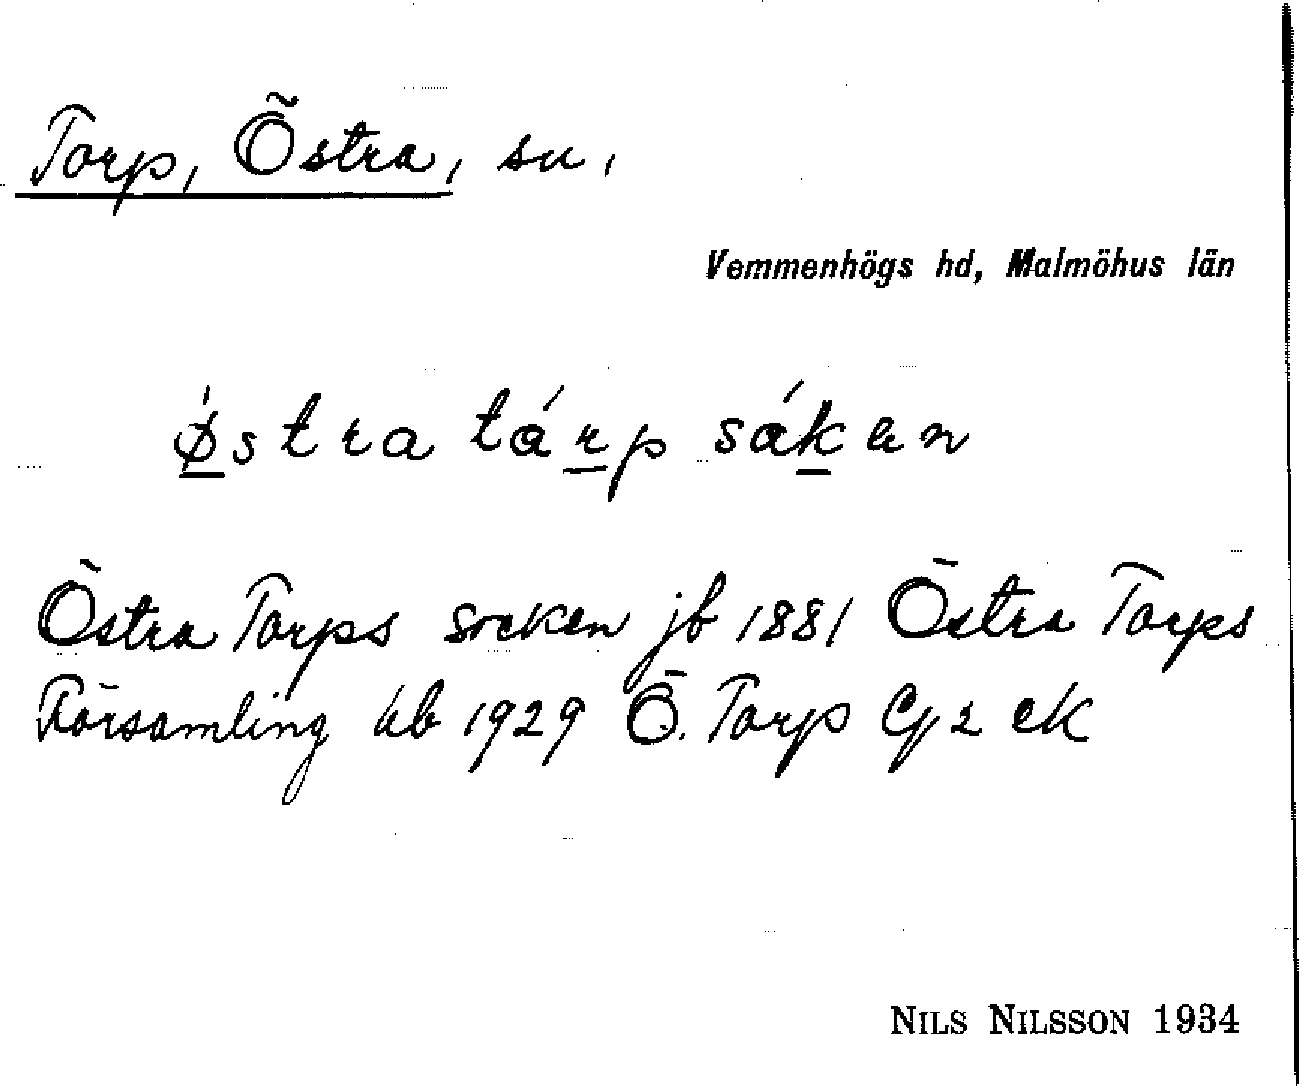 Torp, Östra, sn,
Vemmenhögs hd, Malmöhus län
ǿstra tárp sáken
Östra Torps socken jb 1881 Östra Torps
Församling kb 1929 Ö. Torp Gj2 ek
NILS NILSSON 1934